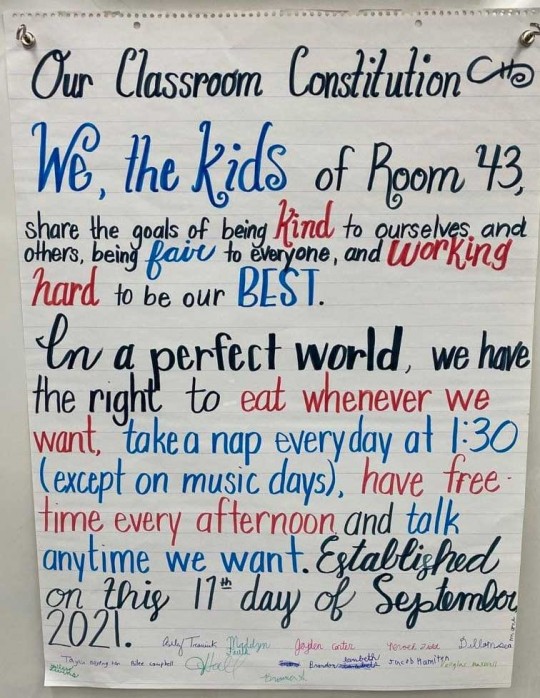 Our Classroom Constitution
We, the kids of Room 43,
share the goals of being kind to ourselves and
others, being fair to everyone, and working
hard to be our BEST.
In a perfect world, we have
the right to eat whenever we
want, take a nap every day at 1:30
(except on music days), have free-
time every afternoon and talk
anytime we want. Established
on this 17th day of September
2021.
Jayden Carter
Campbell
Jacob